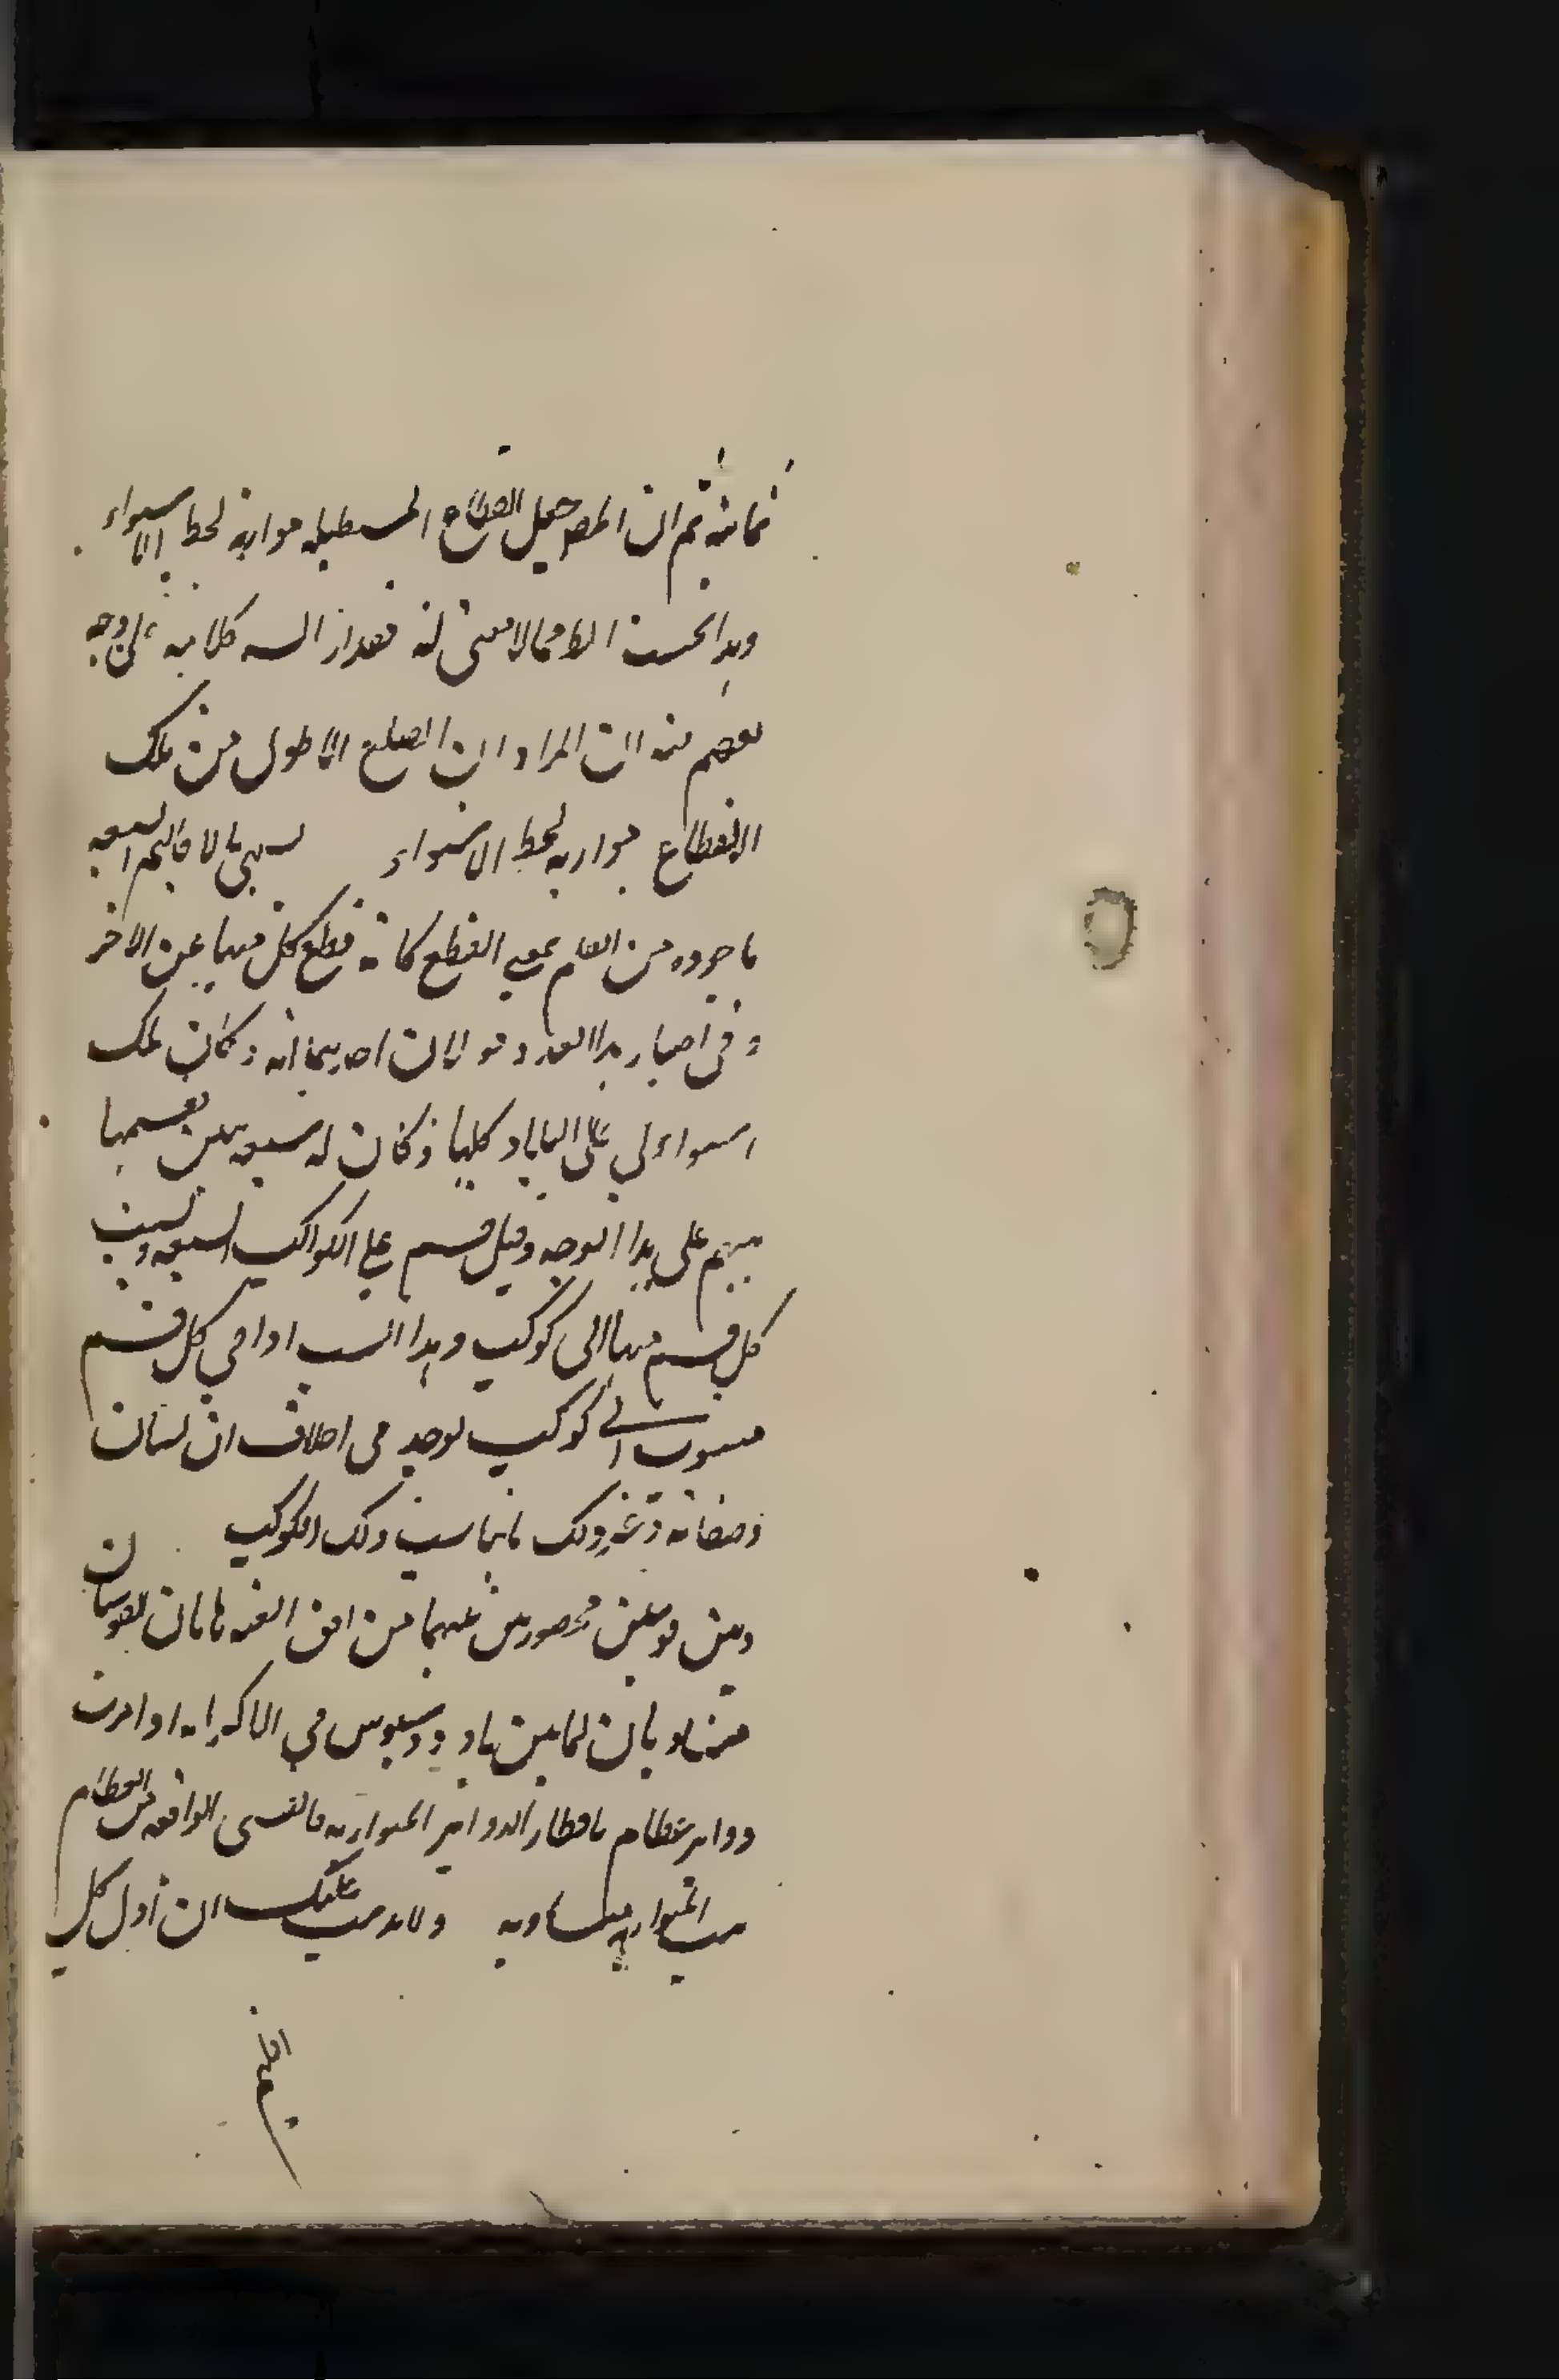 ثمانية ثم ان المصه جعل القطاع المستطيله موازية لخط الاستواء
وهذا بحسب الظ مما لا معنى له فقد ار السه كلامه على وجه
يفهم منه ان المراد ان الضلع الاطول من تلك
الانقطاع موازيه لخط الاستواء يسمى بالاقاليم السبعه
ماخوذه من القلم بمعنى القطع كانه قطع كل منها عن الاخر
و فى اختيار هذا العدد قولان احديهما انه و كان ملك
استولى على البلاد كلها و كان له سبعه بنين فقسمها
بينهم على هذا الوجه وقيل قسم على الكواكب السبعه ونسب
كل قسم منها الى كوكب وهذا انسب اذا فى كل قسم
منسوب الى كوكب يوجد فى اخلاق انسان
وصفاته وغير ذلك ما يناسب ذلك الكوكب
وبين قوسين محصورين بينهما من افق القبه فان القوسان
متساويان لما بين ثاوذوسيوس فى الاكر انه اذا مرت
دواير عظام باقطار الدواير المتوازيه فالقسى الواقعه من العظام
بين المتوازيه متساويه ولا يذهب عليك ان اول كل
اقليم